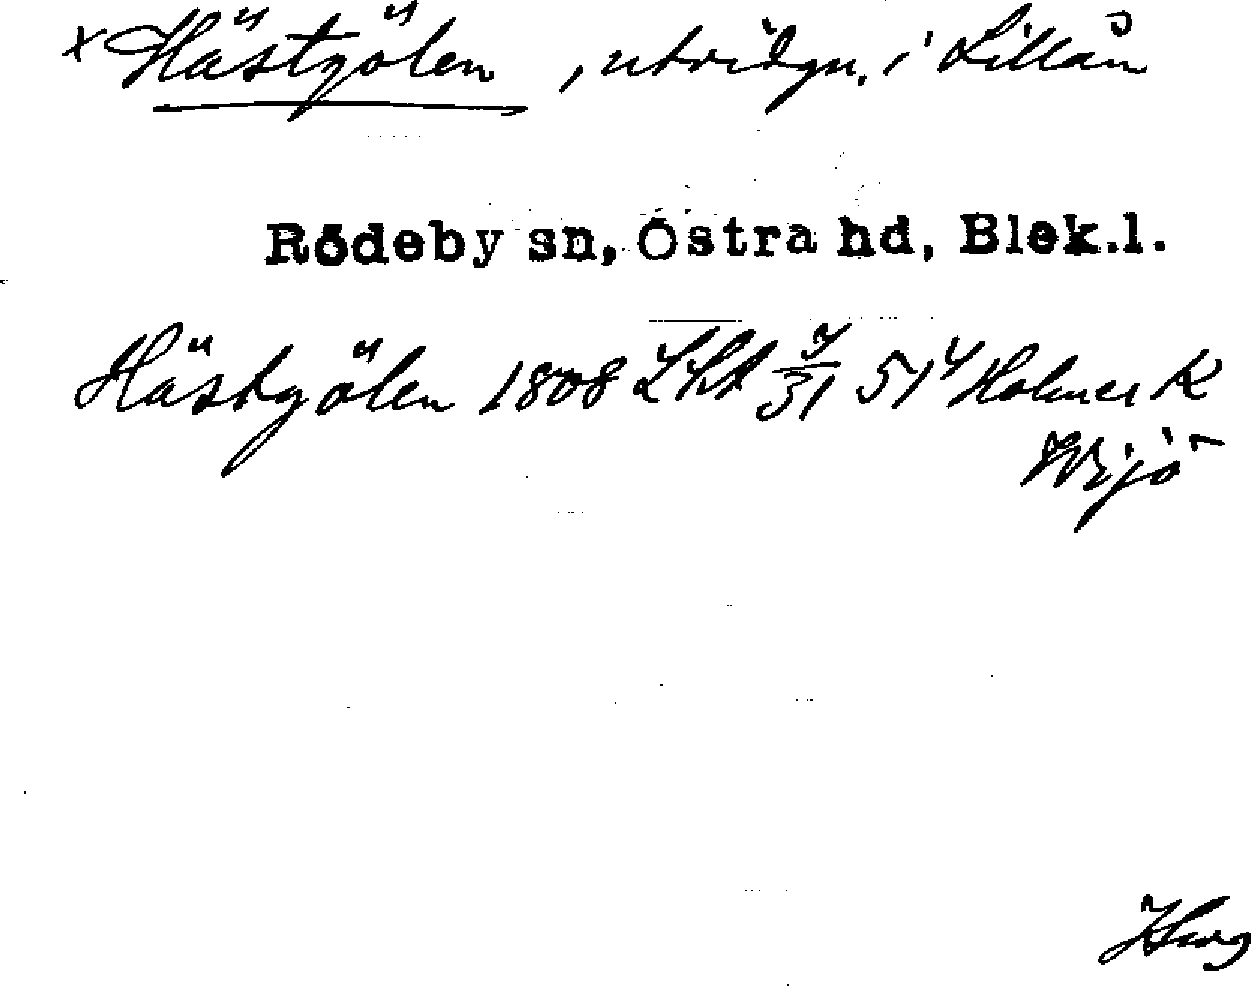 x Hästgölen, utvidgn. i Lillån
Rödeby sn, Östra hd, Blek.l.
Hästgölen 1808 51 Holmer K